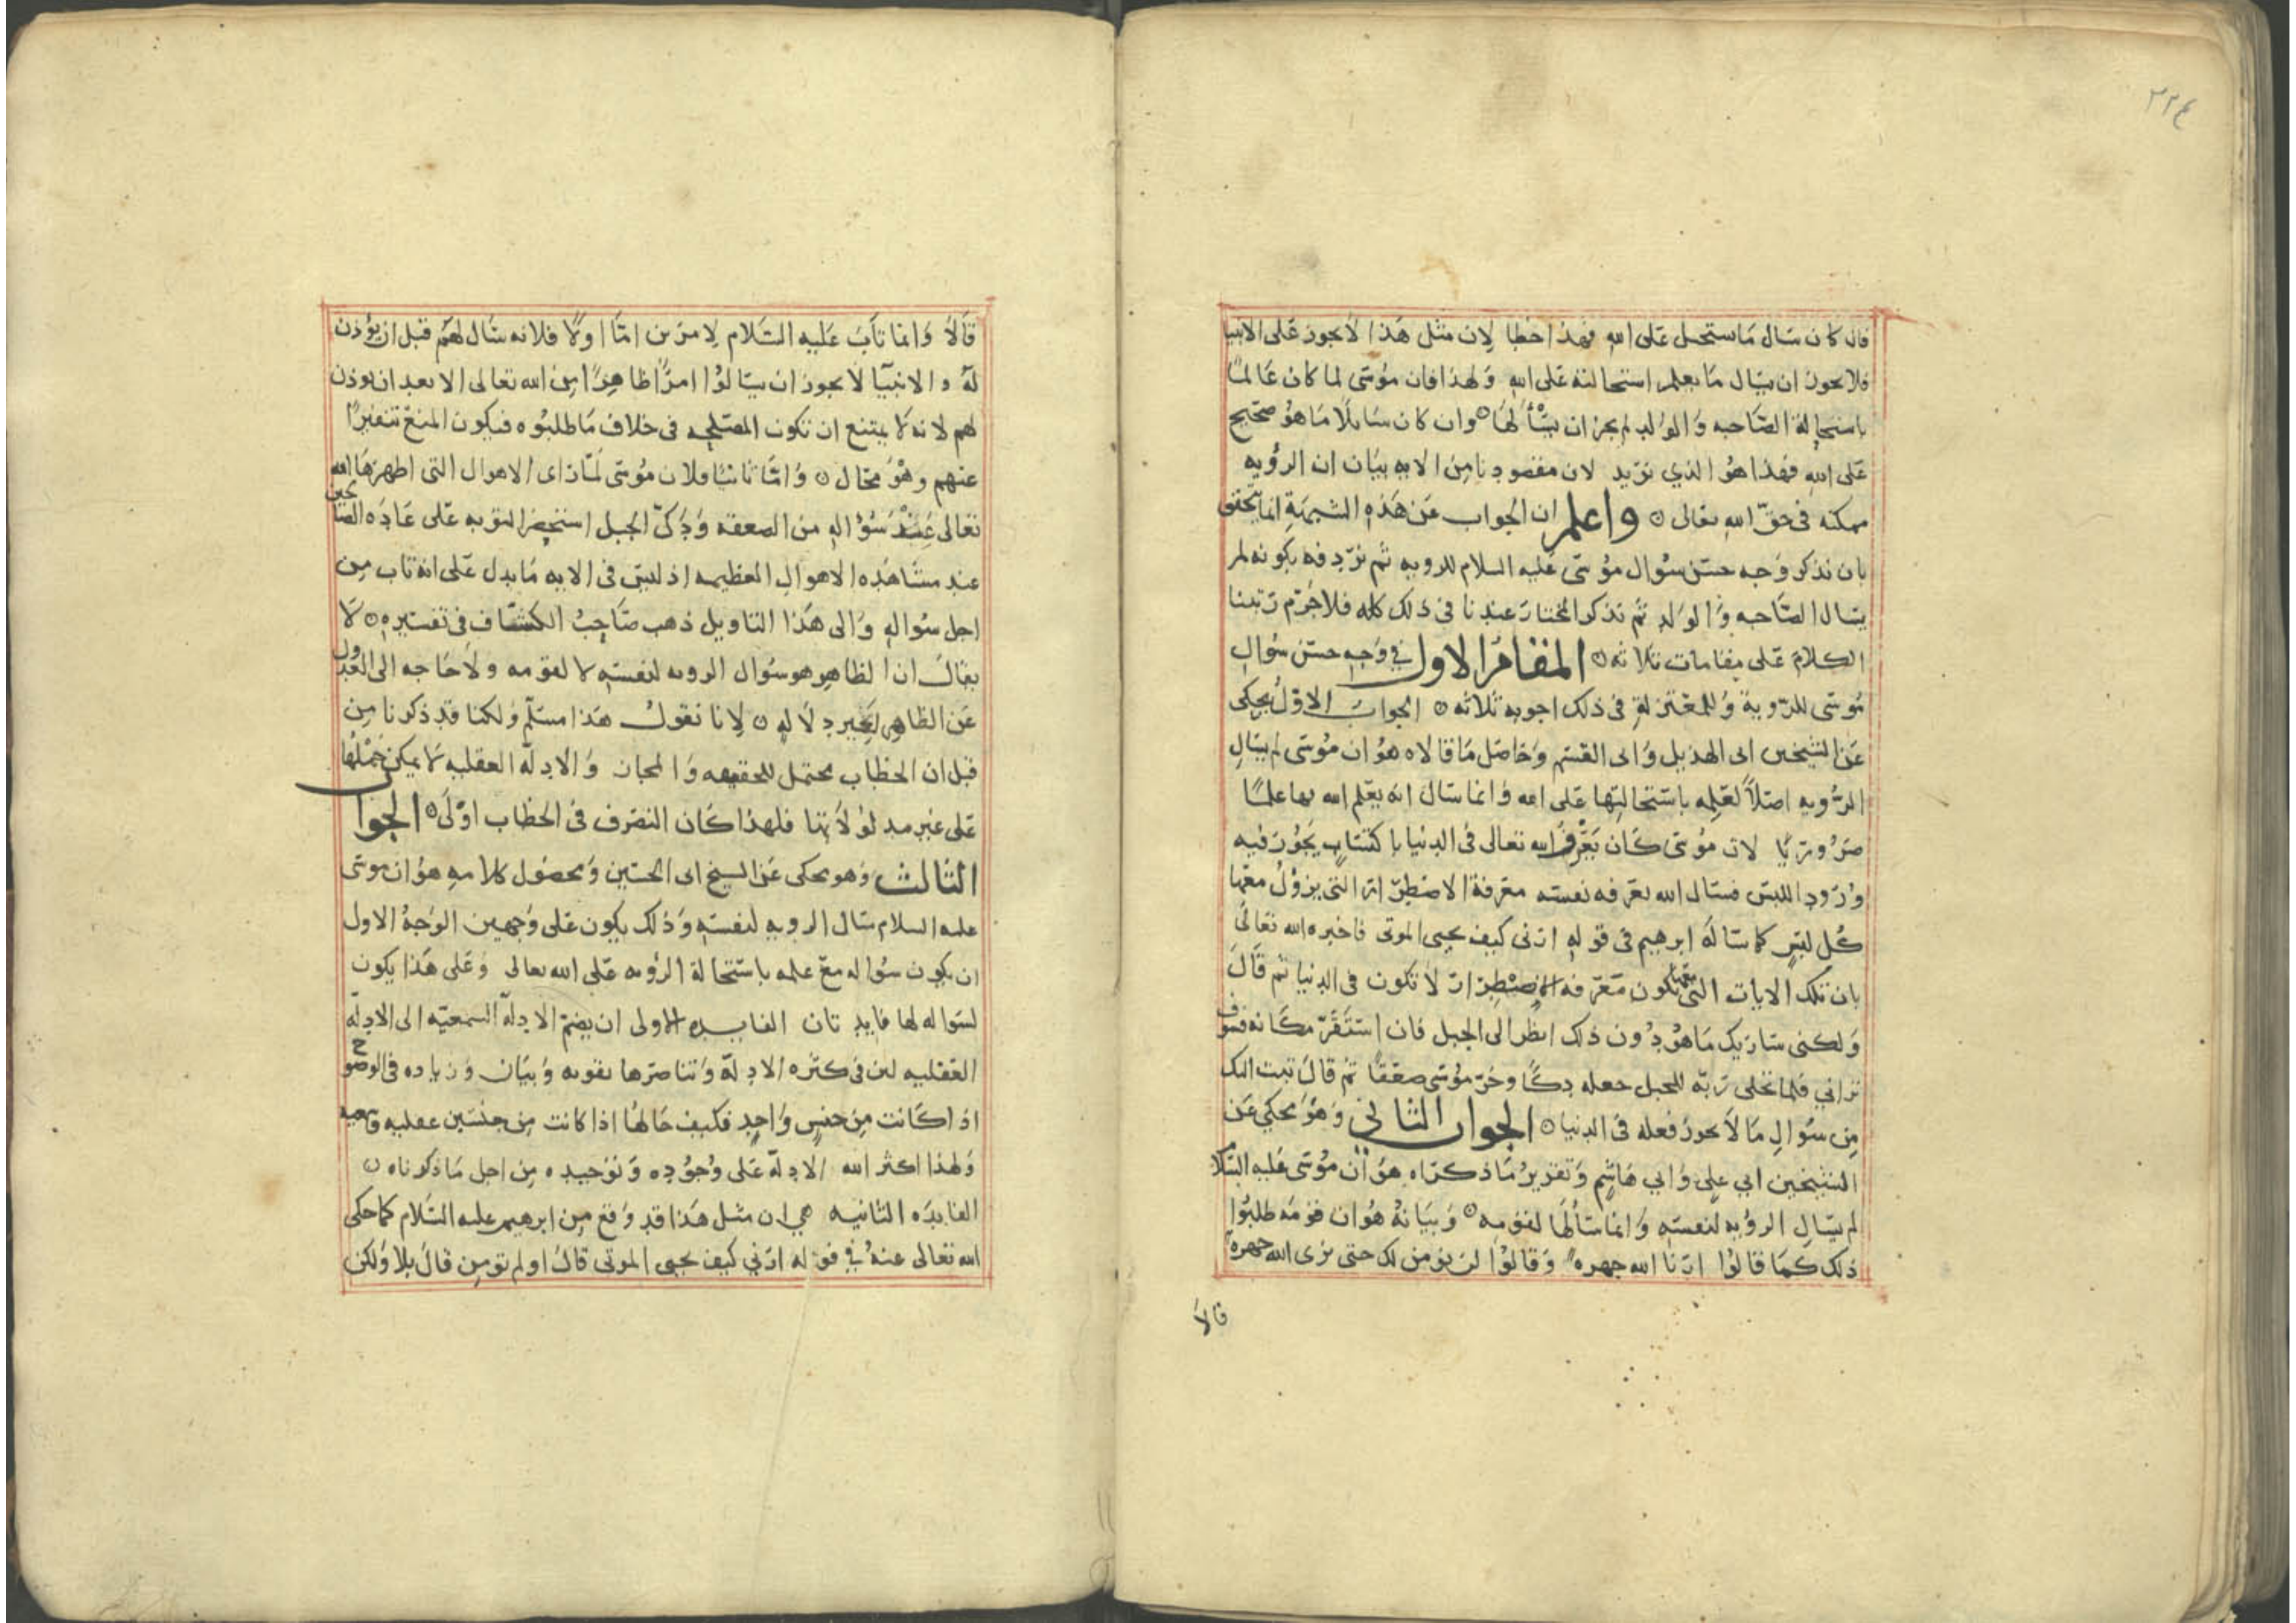 ٢٢٤
فان كان سال ما ستحيل على الله فهذا خطا لان مثل هذا لا يجوز على الانبيا
فلا يجوز ان يسال ما يعلم استحالته على الله ولهذا فان موسى لما كان عالما
باستحالة الصاحبه والوالد لم يجز ان يسألها ⊙ وان كان سايلا ما هو صحيح
على الله فهذا هو الذي نريد لان مقصودنا من الايه بيان ان الرؤيه
ممكنه في حق الله تعالى ⊙ واعلم ان الجواب عن هذه الشبهة انما يتحقق
بان نذكر وجه حسن سؤال موسى عليه السلام للرويه ثم نردفه بكونه لم
يسال الصاحبه والوالد ثم نذكر المختار عندنا في ذلك كله فلا جرم رتبنا
الكلام على مقامات ثلاثه ⊙ المقام الاول في وجه حسن سؤال
موسى للرؤية وللمعتزلة في ذلك اجوبه ثلاثه ⊙ الجواب الاول يحكى
عن الشيخين ابى الهذيل وابى القسم وحاصل ما قالاه هو ان موسى لم يسال
الرؤيه اصلا لعلمه باستحالتها على الله وانما سال انه يعلم الله بها علما
ضروريا لان موسى كان يعرف الله تعالى في الدنيا باكتساب يجوز فيه
ورود اللبس فسال الله تعرفه نفسه معرفة الاضطرار التي يزول معها
كل لبس كما ساله ابرهيم في قوله ارني كيف تحيي الموتى فاخبره الله تعالى
بان تلك الايات التي معها تكون معرفه الاضطرار لا تكون في الدنيا ثم قال
ولكني ساريك ما هو دون ذلك انظر الى الجبل فان استقر مكانه فسوف
تراني فلما تجلى ربه للجبل جعله دكا وخر موسى صعقا ثم قال تبت اليك
من سؤال ما لا يجوز فعله في الدنيا ⊙ الجواب الثاني وهو يحكى عن
الشيخين ابي علي وابي هاشم وتقرير ما ذكراه هو ان موسى عليه السلام
لم يسال الرؤيه لنفسه وانما سألها لقومه ⊙ وبيانه هو ان قومه طلبوا
ذلك كما قالوا ارنا الله جهره وقالوا لن نومن لك حتى نرى الله جهرة
قالا
قالا وانما تاب عليه السلام لامرين اما اولا فلانه سال لهم قبل ان يؤذن
له والانبيا لا يجوز ان يسالوا امرا ظاهرا من الله تعالى الا بعد ان يوذن
لهم لانه لا يمتنع ان تكون المصلحه في خلاف ما طلبوه فيكون المنع تنفيرا
عنهم وهو محال ⊙ واما ثانيا فلان موسى لما راى الاهوال التي اظهرها الله
تعالى عند سؤاله من الصعقه ودك الجبل استحضر التوبه على عاده الصالحين
عند مشاهده الاهوال العظيمه اذ ليس في الايه ما يدل على انه تاب من
اجل سؤاله والى هذا التاويل ذهب صاحب الكشاف في تفسيره ⊙ لا
يقال ان الظاهر هو سؤال الرويه لنفسه لا لقومه ولا حاجه الى العدول
عن الظاهر لغير دلاله ⊙ لانا نقول هذا مسلم ولكنا قد ذكرنا من
قبل ان الخطاب محتمل للحقيقه والمجاز والادلة العقليه لا يمكن حملها
على غير مدلولاتها فلهذا كان التصرف في الخطاب اولى ⊙ الجواب
الثالث وهو يحكى عن الشيخ ابى الحسين ومحصول كلامه هو ان موسى
عليه السلام سال الرويه لنفسه وذلك يكون على وجهين الوجه الاول
ان يكون سؤاله مع علمه باستحالة الرؤيه على الله تعالى وعلى هذا يكون
لسؤاله لها فايدتان الفايده الاولى ان يضم الادلة السمعيه الى الادلة
العقليه لان في كثره الادلة وتناصرها تقويه وبيان وزياده في الوضوح
اذا كانت من جنس واحد فكيف حالها اذا كانت من جنسين عقليه وسمعيه
ولهذا اكثر الله الادلة على وجوده وتوحيده من اجل ما ذكرناه ⊙
الفايده الثانيه هي ان مثل هذا قد وقع من ابرهيم عليه السلام كما حكى
الله تعالى عنه في قوله ارني كيف تحيي الموتى قال اولم تومن قال بلا ولكن